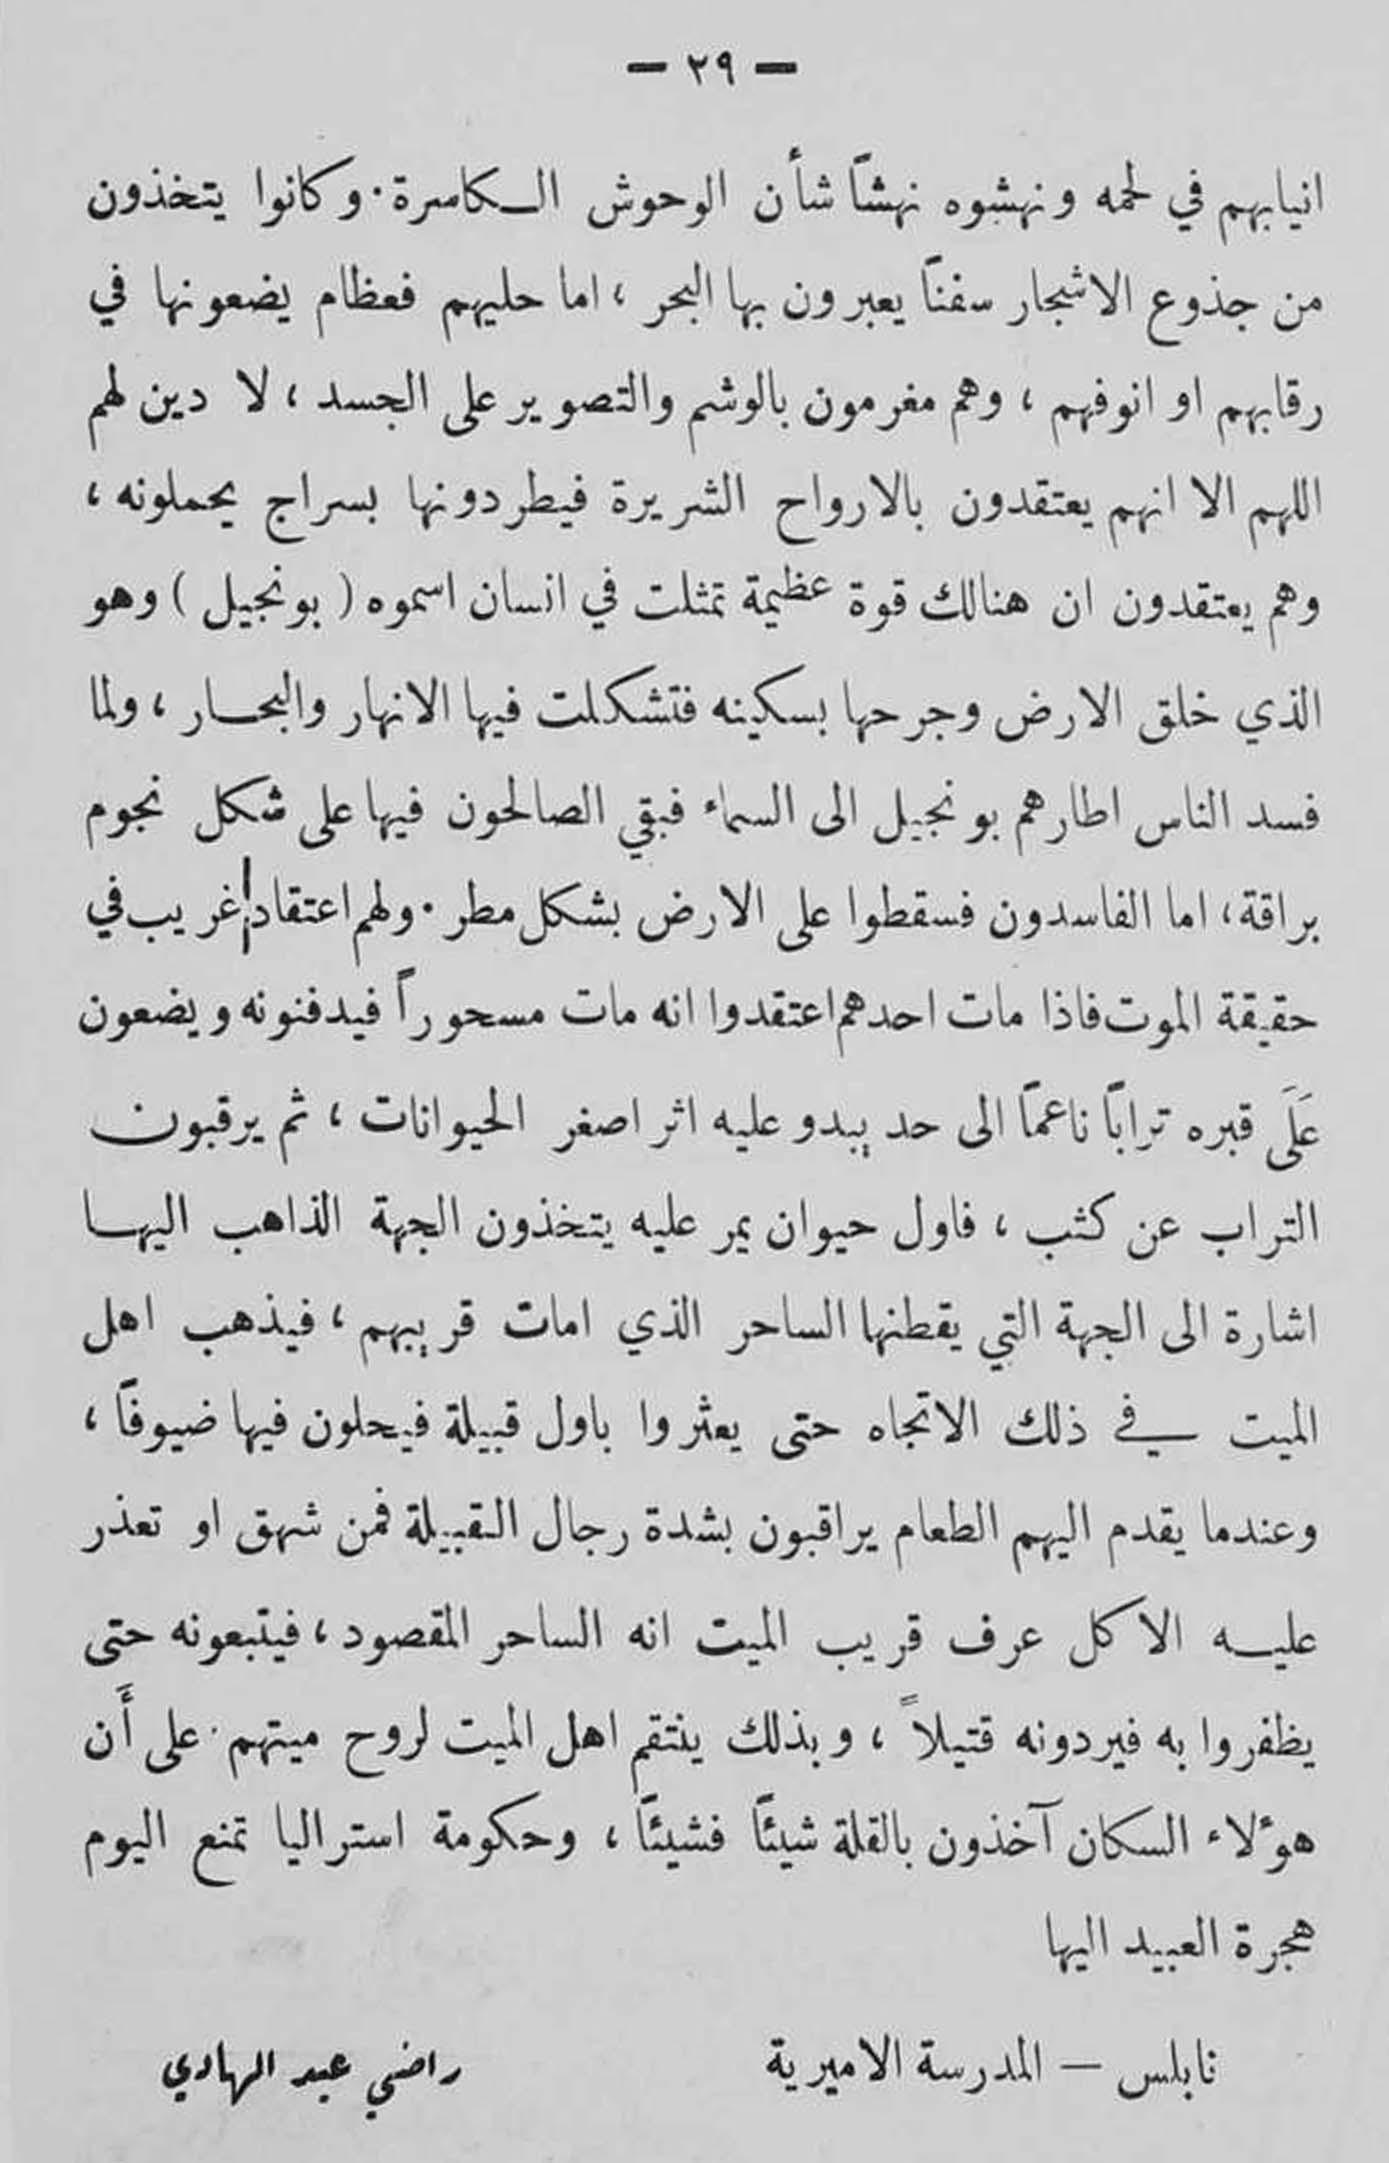 — ٢٩ —
انيابهم في لحمه ونهشوه نهشاً شأن الوحوش الكاسرة. وكانوا يتخذون
من جذوع الاشجار سفناً يعبرون بها البحر ، اما حليهم فعظام يضعونها في
رقابهم او انوفهم ، وهم مغرمون بالوشم والتصوير على الجسد ، لا دين لهم
اللهم الا انهم يعتقدون بالارواح الشريرة فيطردونها بسراج يحملونه ،
وهم يعتقدون ان هنالك قوة عظيمة تمثلت في انسان اسموه ( بونجيل ) وهو
الذي خلق الارض وجرحها بسكينه فتشكلت فيها الانهار والبحار ، ولما
فسد الناس اطارهم بونجيل الى السماء فبقي الصالحون فيها على شكل نجوم
براقة ، اما الفاسدون فسقطوا على الارض بشكل مطر . ولهم اعتقاد غريب في
حقيقة الموت فاذا مات احدهم اعتقدوا انه مات مسحوراً فيدفنونه ويضعون
عَلَى قبره تراباً ناعماً الى حد يبدو عليه اثر اصغر الحيوانات ، ثم يرقبون
التراب عن كثب ، فاول حيوان يمر عليه يتخذون الجهة الذاهب اليها
اشارة الى الجهة التي يقطنها الساحر الذي امات قريبهم ، فيذهب اهل
الميت في ذلك الاتجاه حتى يعثروا باول قبيلة فيحلون فيها ضيوفاً ،
وعندما يقدم اليهم الطعام يراقبون بشدة رجال القبيلة فمن شهق او تعذر
عليه الاكل عرف قريب الميت انه الساحر المقصود ، فيتبعونه حتى
يظفروا به فيردونه قتيلاً ، وبذلك ينتقم اهل الميت لروح ميتهم . على أَن
هؤلاء السكان آخذون بالقلة شيئاً فشيئاً ، وحكومة استراليا تمنع اليوم
هجرة العبيد اليها
نابلس — المدرسة الاميرية راضي عبد الهادي